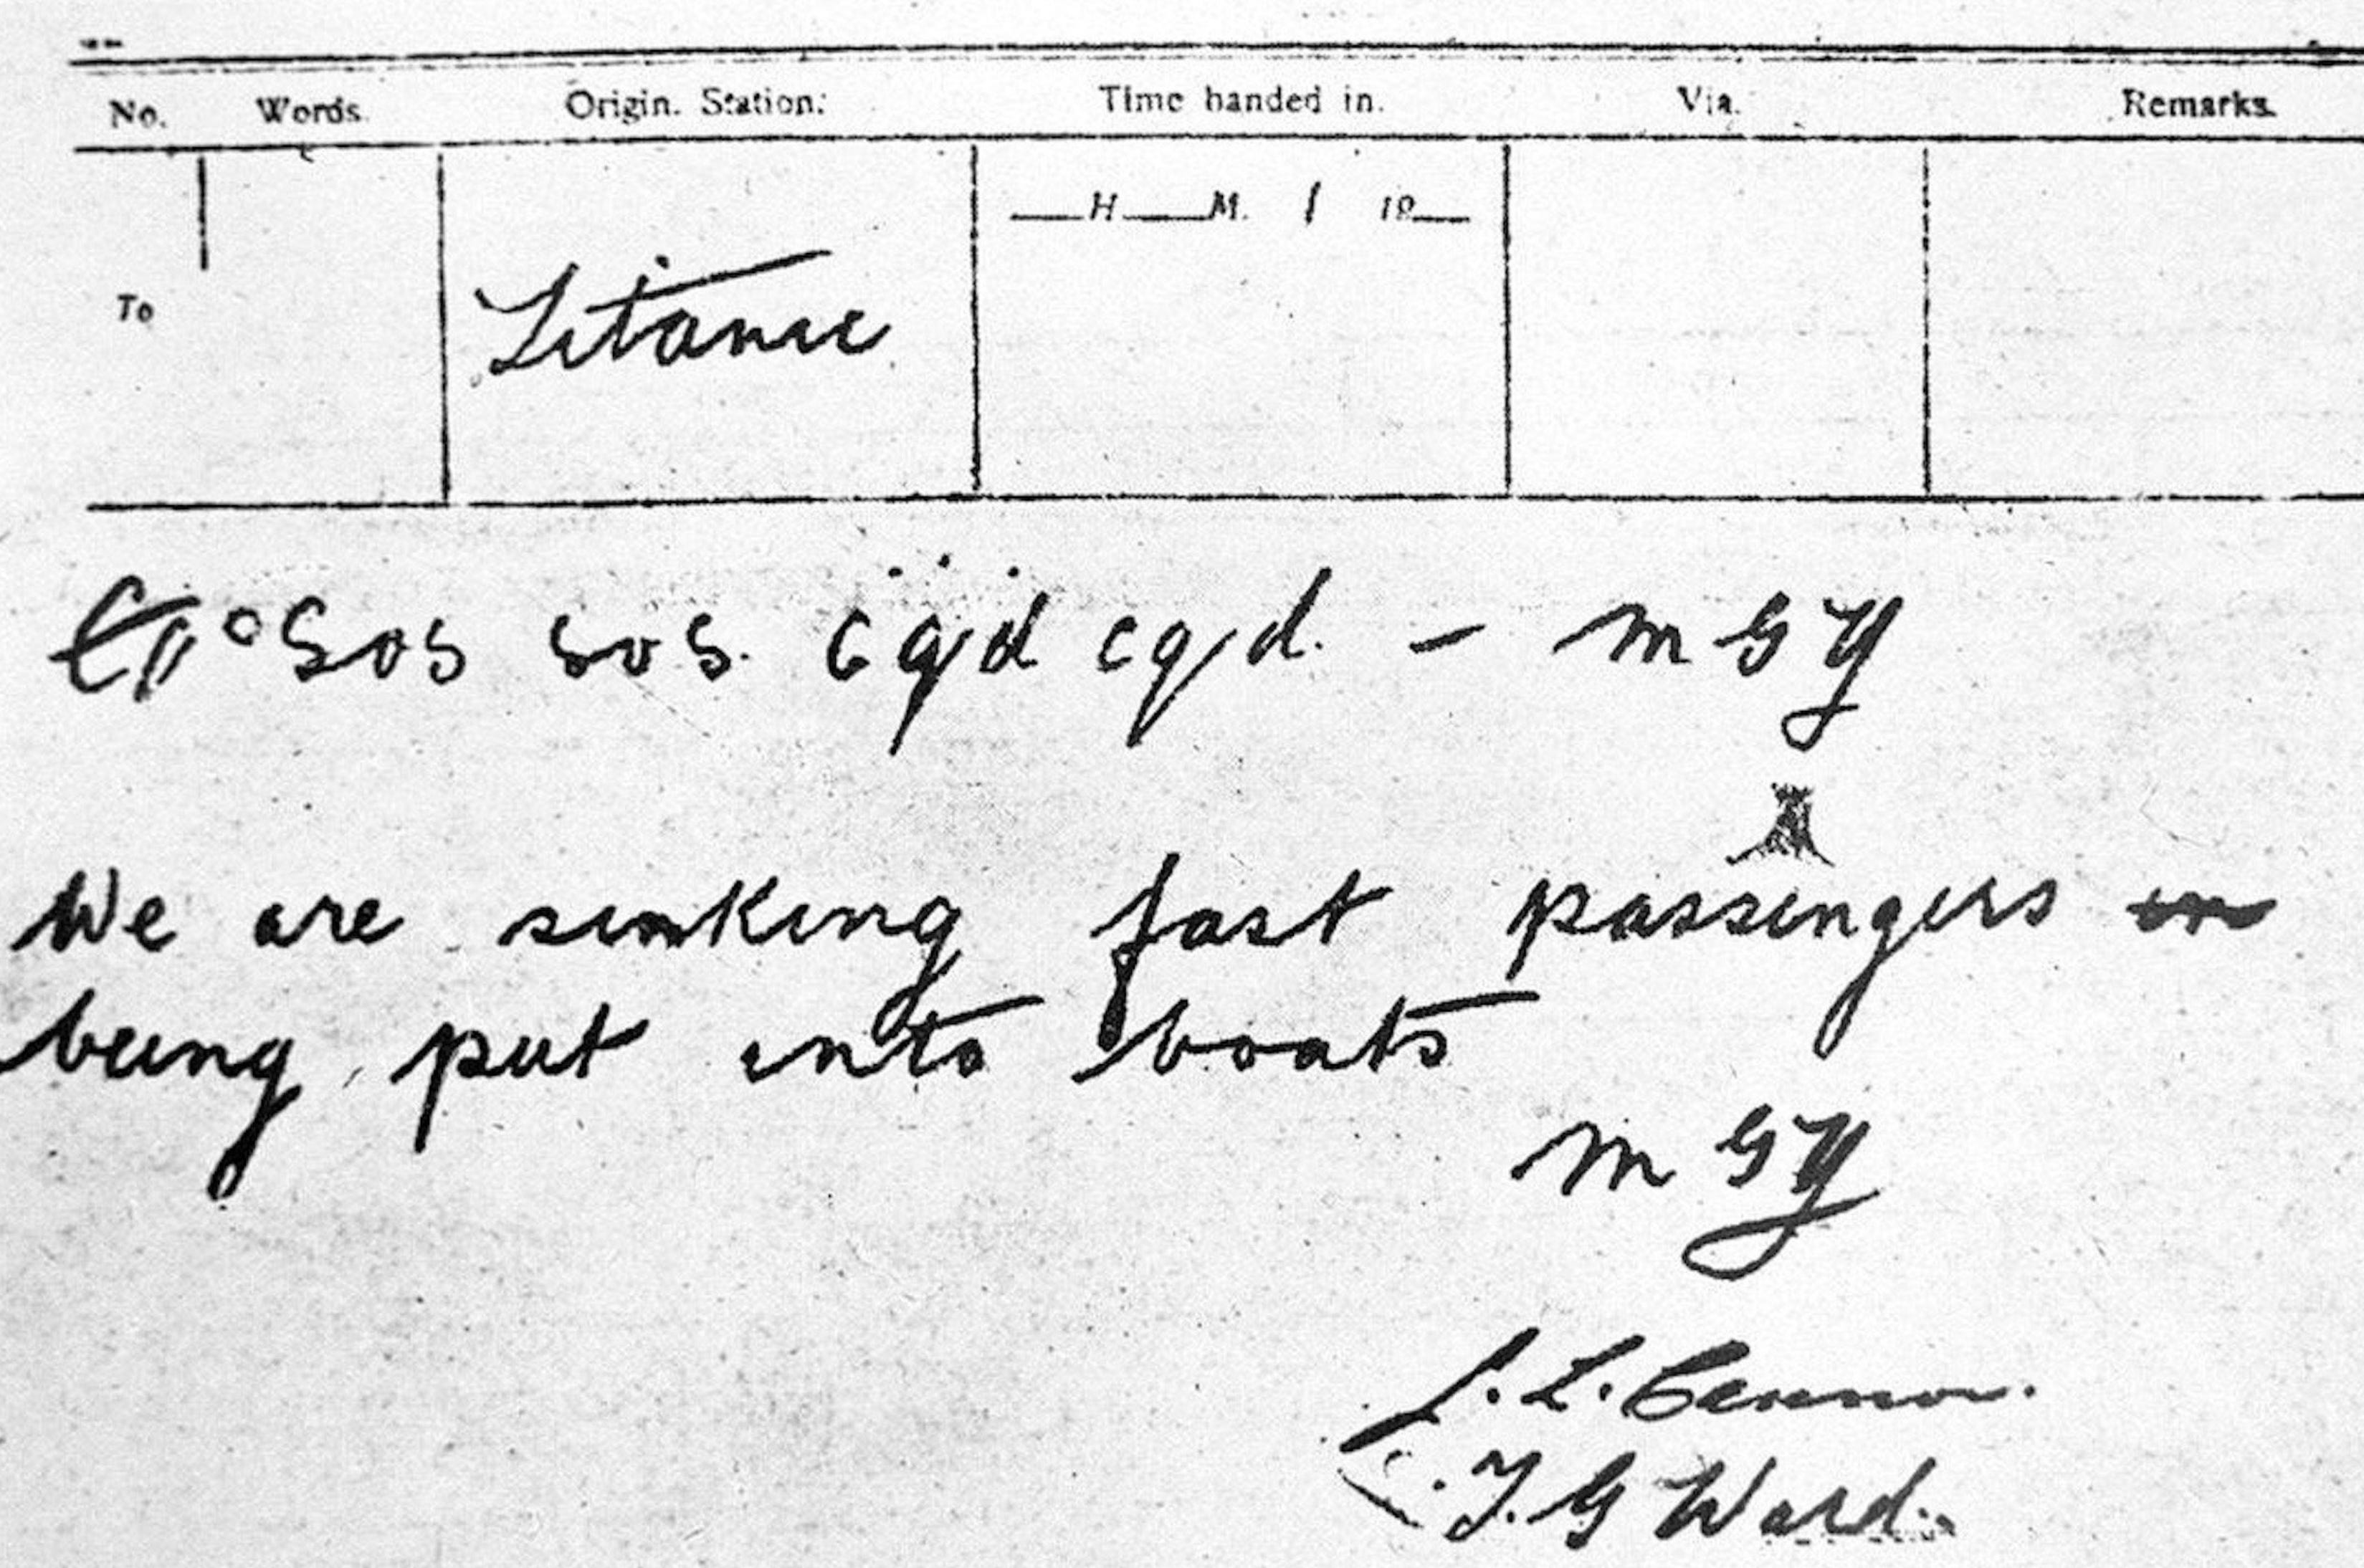 No. Words. Origin. Station. Time handed in. Via. Remarks.
H. M. / 19
To
Titanic
SOS SOS. cqd cqd. - MGY
We are sinking fast passengers
being put into boats
MGY
T. G Ward.